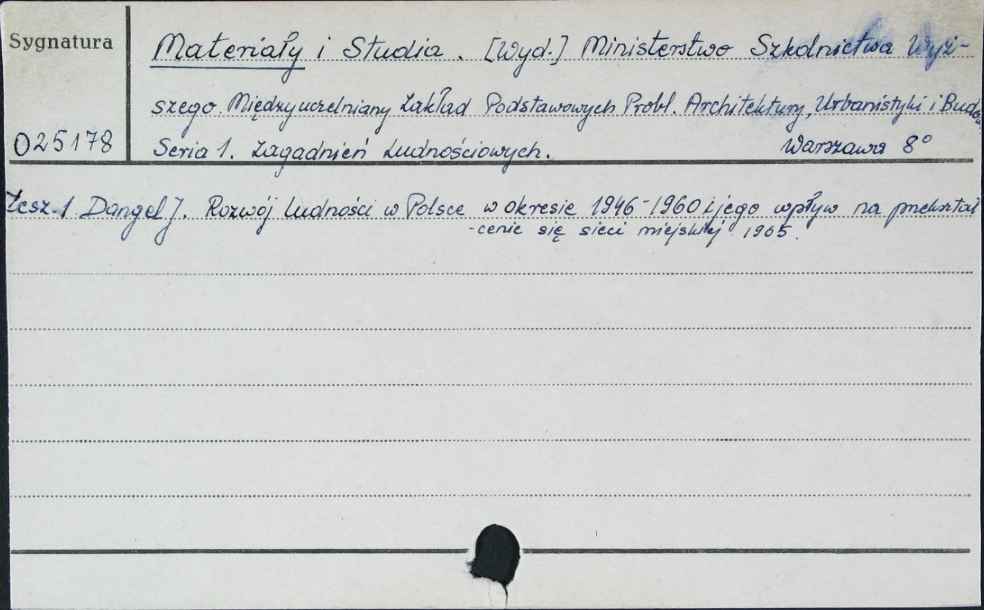 Sygnatura
Materiały i Studia. [Wyd.] Ministerstwo Szkolnictwa Wyż-
szego. Międzyuczelniany Zakład Podstawowych Probl. Architektury, Urbanistyki i Budo
025178
Seria 1. Zagadnień Ludnościowych. Warszawa 8°
Zesz. 1 Dangel J. Rozwój ludności w Polsce w okresie 1946-1960 i jego wpływ na przekształ
-cenie się sieci miejskiej 1965.